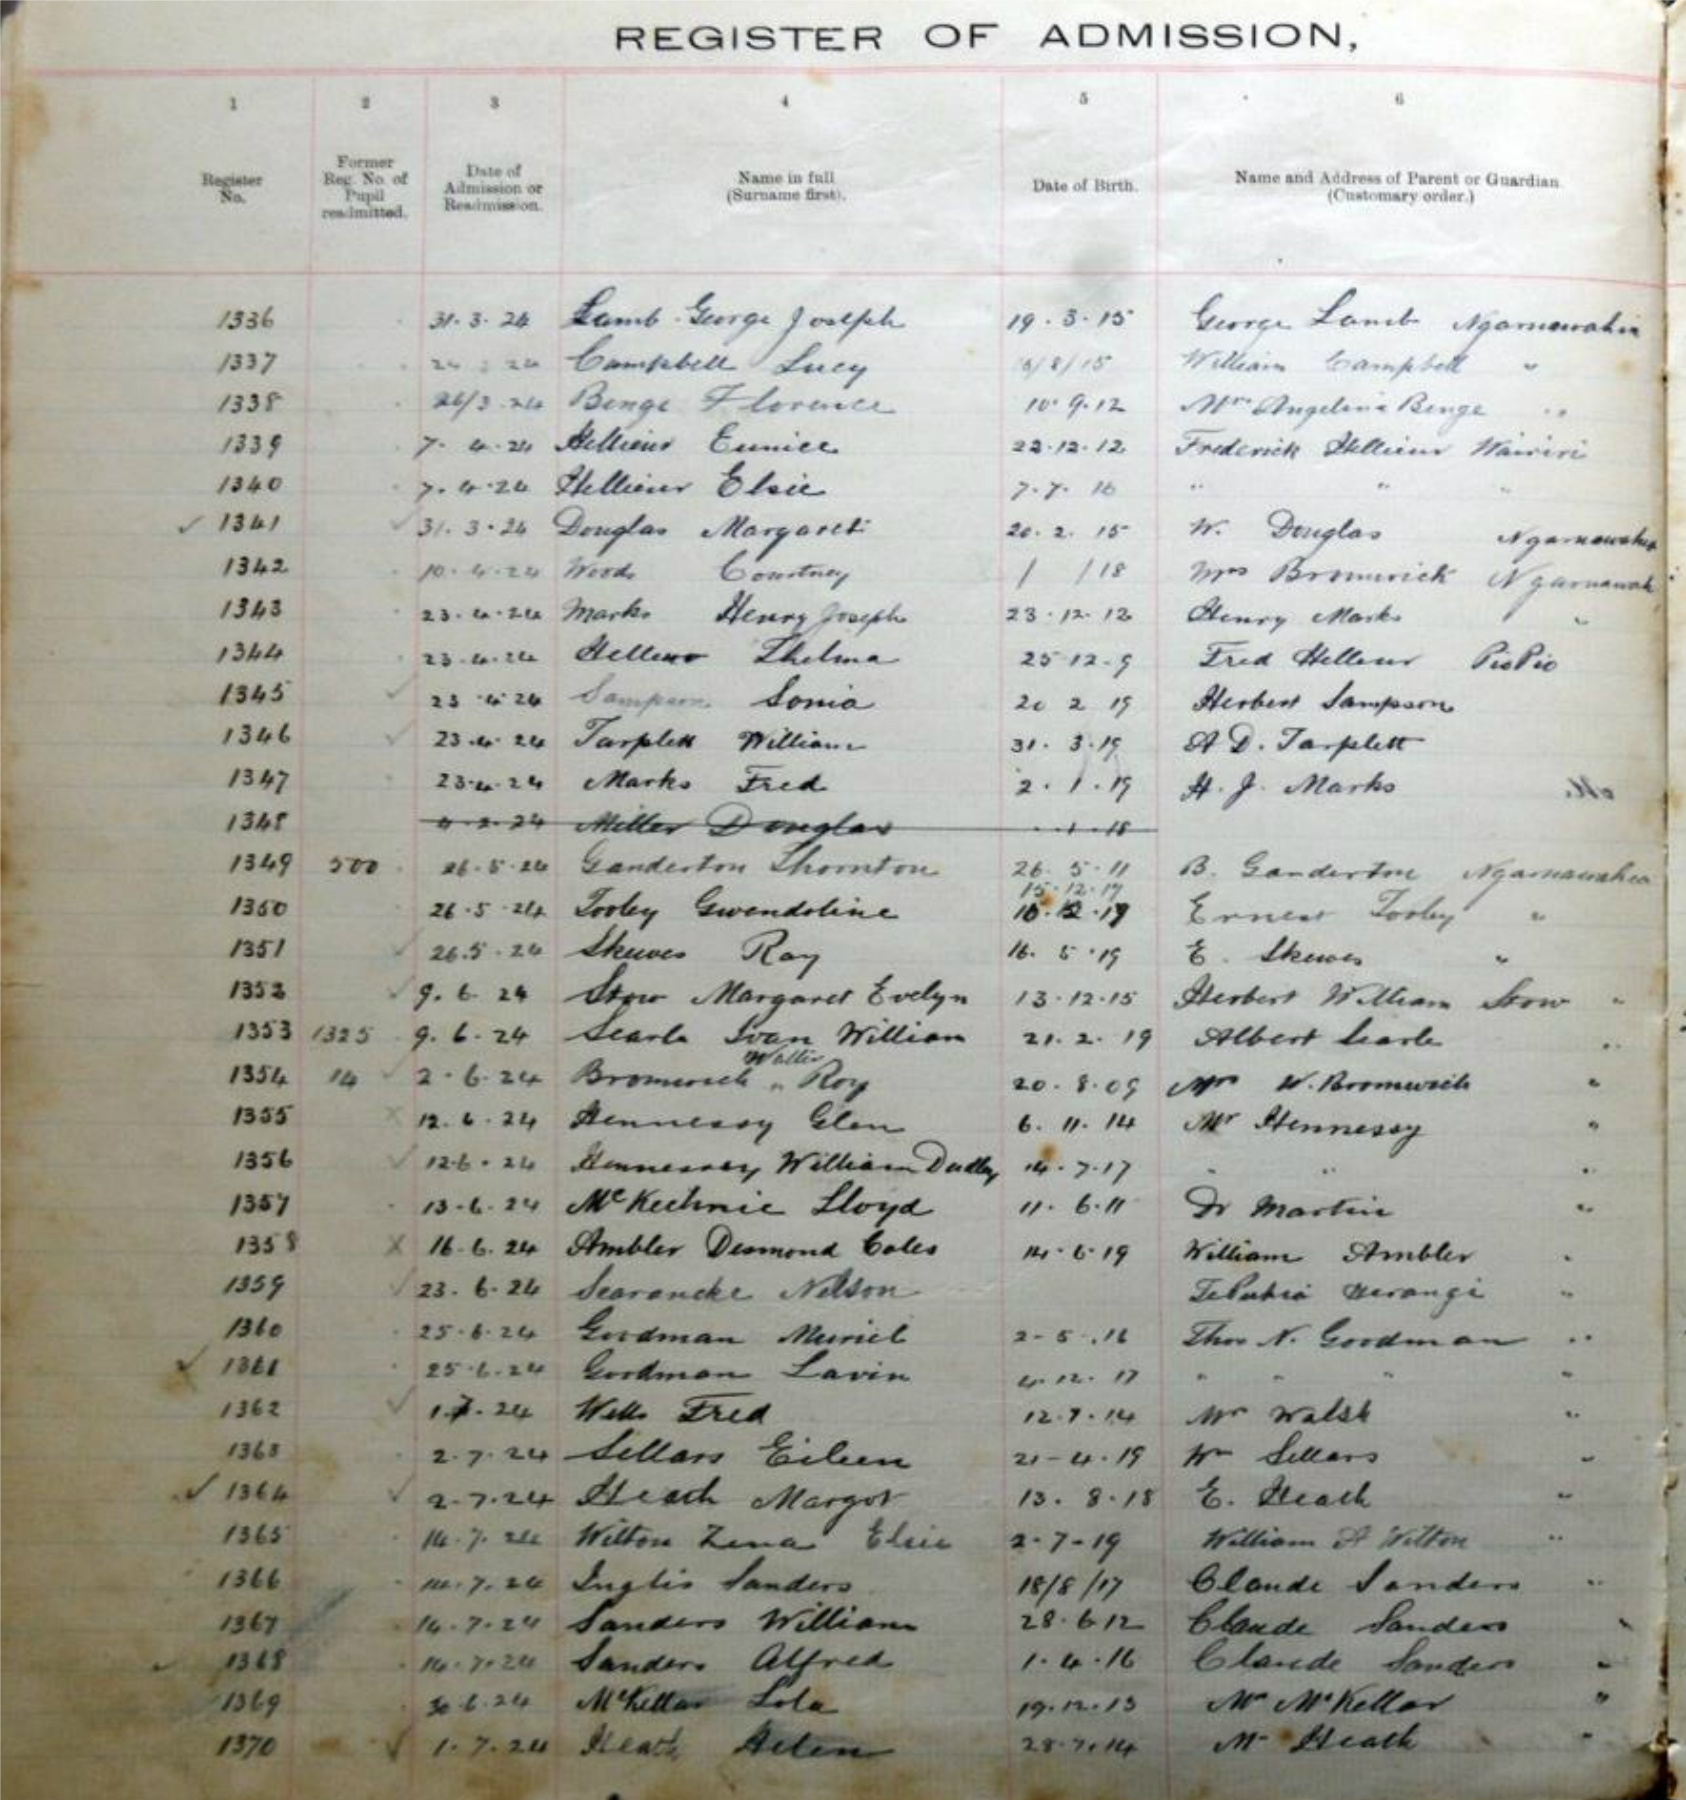 REGISTER OF ADMISSION,
1 2 3 4 5 6
Register No. Former Reg. No. of Pupil readmitted. Date of Admission or Readmission. Name in full (Surname first). Date of Birth. Name and Address of Parent or Guardian (Customary order.)
1336 31.3.24 Lamb George Joseph 19.3.15 George Lamb Ngaruawahia
1337 Campbell Lucy /8/15 William Campbell "
1338 26/3.24 Benge Florence 10.9.12 Mrs Angelina Benge "
1339 7.4.24 Hellieur Eunice 22.12.12 Frederick Hellieur
1340 7.4.24 Hellieur Elsie 7.7.16 " " "
✓ 1341 ✓ 31.3.24 Douglas Margaret 20.2.15 W. Douglas Ngaruawahia
1342 10.4.24 Woods Courtney / /18 Mrs Bromwich Ngaruawah
1343 23.4.24 Marks Henry Joseph 23.12.12 Henry Marks "
1344 23.4.24 Thelma 25 12.9 Fred Hellieur PioPio
1345 ✓ 23.4.24 Sampson Sonia 20 2 19 Herbert Sampson
1346 ✓ 23.4.24 Tarplett William 31.3.19 A D. Tarplett
1347 23.4.24 Marks Fred 2.1.19 H. J. Marks
1348 24 Miller Douglas 18
1349 500 26.5.24 Ganderton Thornton 26.5.11 B. Ganderton Ngaruawahia
15.12.17
1350 26.5.24 Tooley Gwendoline 19 Ernest Tooley "
1351 ✓ 26.5.24 Skewes Ray 16.5.19 E. Skewes "
1352 ✓ 9.6.24 Stow Margaret Evelyn 13.12.15 Herbert William Stow "
1353 1325 9.6.24 Searle Ivan William 21.2.19 Albert Searle "
Walter
1354 14 ✓ 2.6.24 Bromwich " Roy 20.8.09 Mr W. Bromwich "
1355 X 12.6.24 Hennessy Glen 6.11.14 Mr Hennessy "
1356 ✓ 12.6.24 Hennessey William Dudley 14.7.17 " " "
1357 13.6.24 McKechnie Lloyd 11.6.11 Dr Martin "
1358 X 16.6.24 Ambler Desmond Coles 14.6.19 William Ambler "
1359 ✓ 23.6.24 Searancke Nelson Te Puhia Herangi "
1360 25.6.24 Goodman Muriel 2-5.16 Thos N. Goodman "
✓ 1361 25.6.24 Goodman Lavin 4.12.17 " " " "
1362 ✓ 1.7.24 Wells Fred 12.7.14 Mr Walsh "
1363 2.7.24 Sellars Eileen 21-4.19 Wm Sellars "
✓ 1364 ✓ 2.7.24 Heath Margot 13.8.18 E. Heath "
1365 14.7.24 Wilton Zena Elsie 2-7-19 William A Wilton "
1366 14.7.24 Inglis Sanders 18/8/17 Claude Sanders "
1367 14.7.24 Sanders William 28.6 12 Claude Sanders "
✓ 1368 14.7.24 Sanders Alfred 1.4.16 Claude Sanders "
1369 30.6.24 McKellar Lola 19.12.13 Mr McKellar "
1370 ✓ 1.7.24 Heath Helen 28.7.14 Mr Heath "